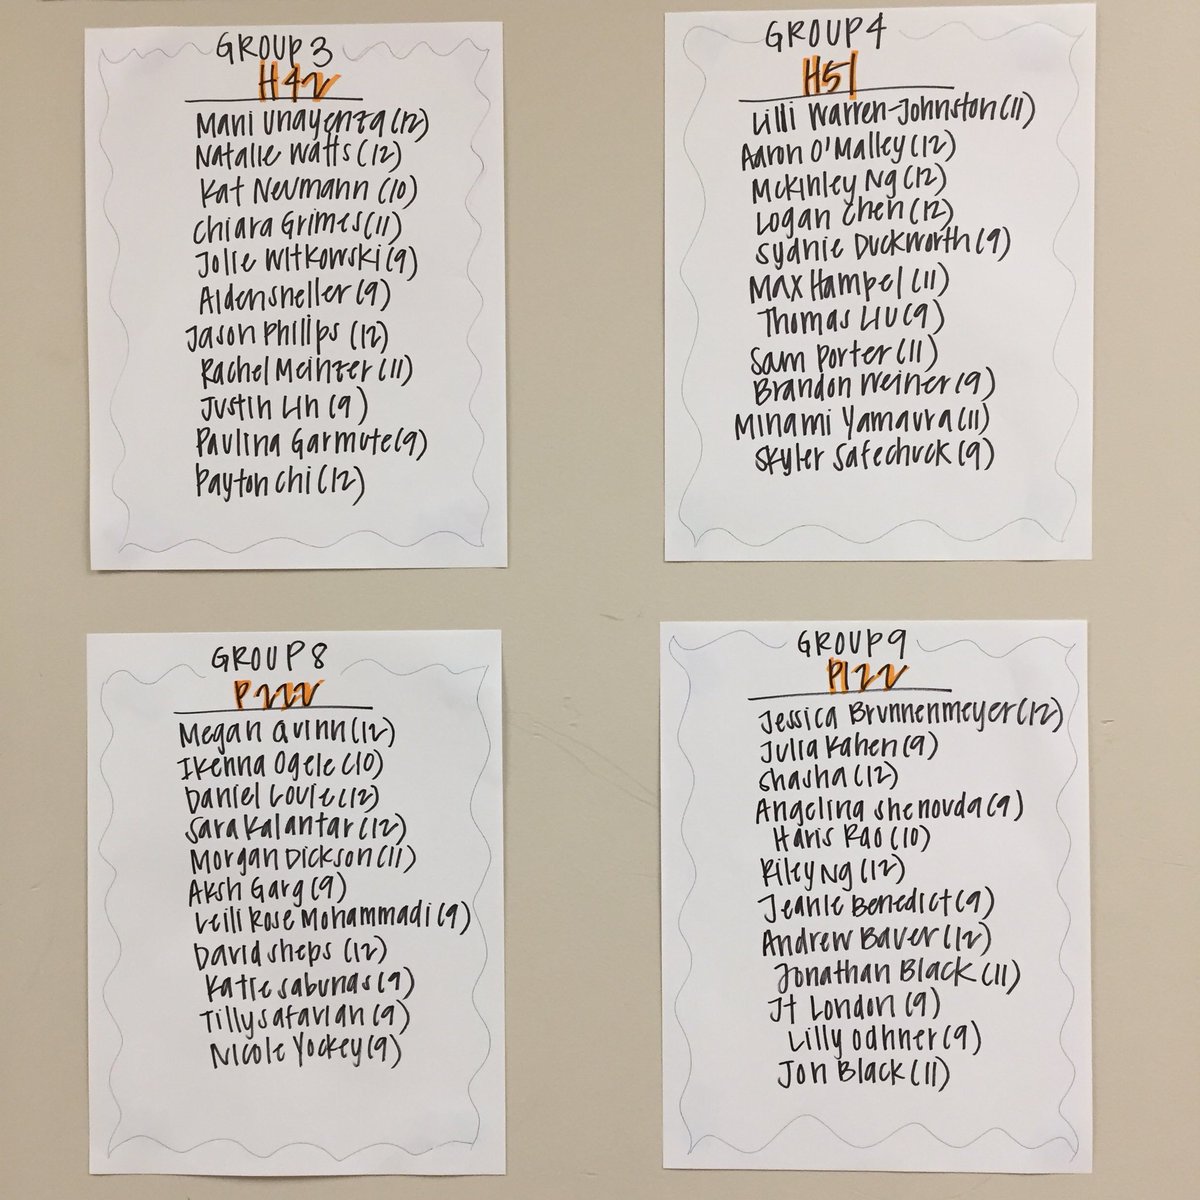 GROUP 3
H42
Mani Unayenza (12)
Natalie Watts (12)
Kat Neumann (10)
Chiara Grimes (11)
Jolie Witkowski (9)
Aiden Sneller (9)
Jason Philips (12)
Rachel Meinzer (11)
Justin Lin (9)
Paulina Garmute (9)
Payton Chi (12)
GROUP 4
H51
Lilli Warren-Johnston (11)
Aaron O'Malley (12)
McKinley Ng (12)
Logan Chen (12)
Sydnie Duckworth (9)
Max Hampel (11)
Thomas Liu (9)
Sam Porter (11)
Brandon Weiner (9)
Minami Yamaura (11)
Skyler Safechuck (9)
GROUP 8
P222
Megan Quinn (12)
Ikenna Ogele (10)
Daniel Louie (12)
Sara Kalantar (12)
Morgan Dickson (11)
Aksh Garg (9)
Leili Rose Mohammadi (9)
David Sheps (12)
Katie Sabunas (9)
Tilly Safavian (9)
Nicole Yockey (9)
GROUP 9
P122
Jessica Brunnenmeyer (12)
Julia Kahen (9)
Shasha (12)
Angelina Shenouda (9)
Haris Rao (10)
Riley Ng (12)
Jeanie Benedict (9)
Andrew Bauer (12)
Jonathan Black (11)
Jt London (9)
Lilly Odhner (9)
Jon Black (11)